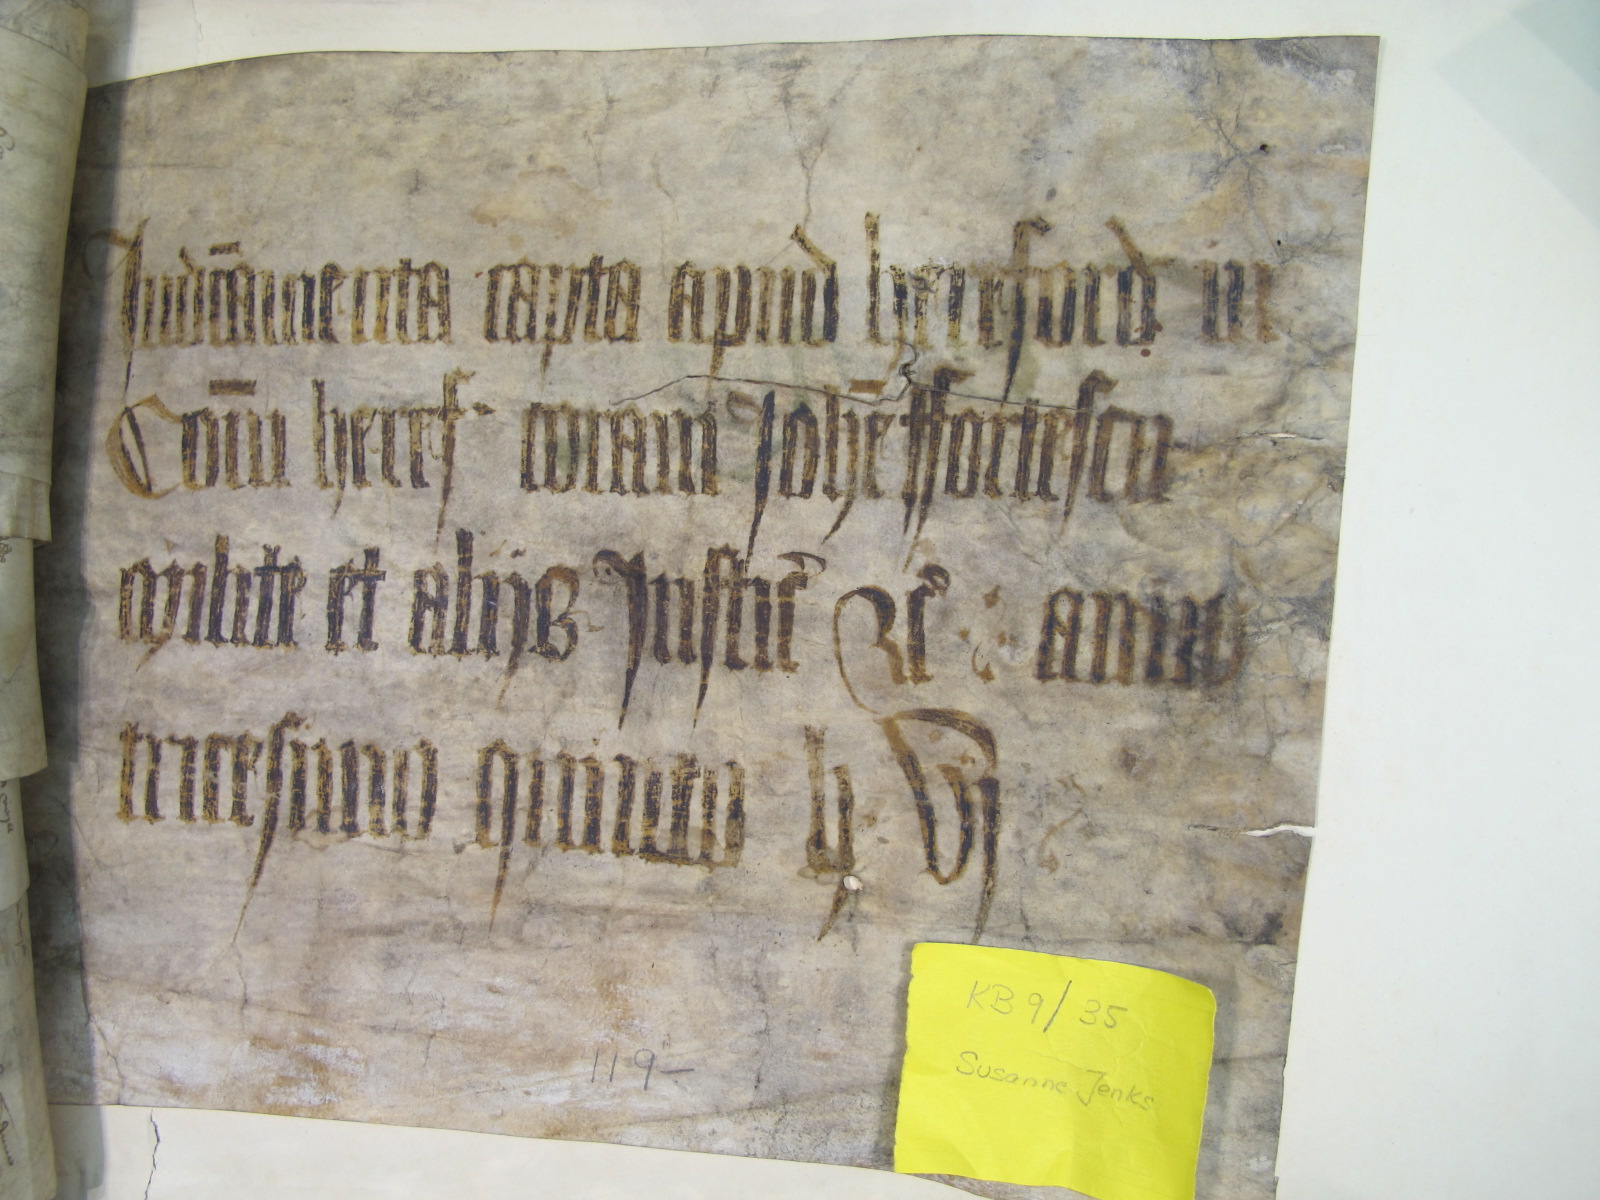 Indictamenta capta apud hereford in
Com̄ heref' coram Joh̄e ffortescu
milite et alijs Justic' &c' anno
tricesimo quinto h vj
119
KB 9/35
Susanne Jenks